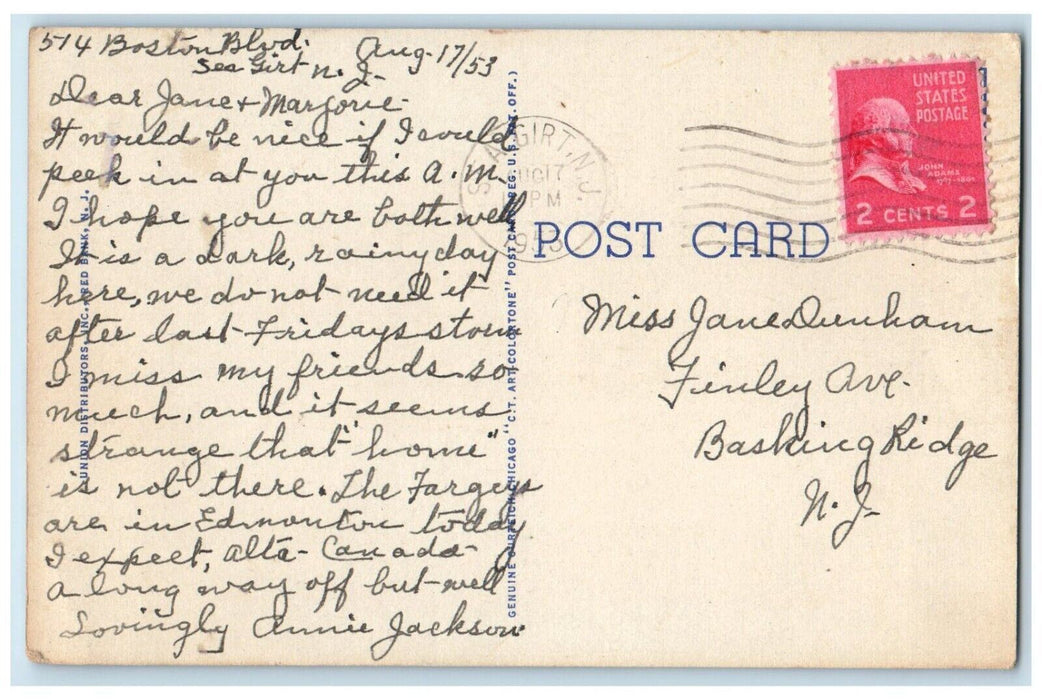 514 Boston Blvd.
Sea Girt N. J.
Aug. 17/53
Dear Jane & Marjorie
It would be nice if I could
peek in at you this A.M.
I hope you are both well
It is a dark, rainy day
here, we do not need it
after last Fridays storm
I miss my friends so
much, and it seems
strange that "home"
is not there. The Fargeys
are in Edmonton today
I expect, Alta- Canada-
a long way off but well
Lovingly Annie Jackson.
UNION DISTRIBUTORS, INC., RED BANK, N. J.
GENUINE CURTEICH-CHICAGO "C.T. ART-COLORTONE" POST CARD (REG. U.S. PAT. OFF.)
SEA GIRT, N.J.
AUG 17
PM
1953
UNITED
STATES
POSTAGE
JOHN
ADAMS
1797-1801
2 CENTS 2
POST CARD
Miss Jane Dunham
Finley Ave.
Basking Ridge
N. J.